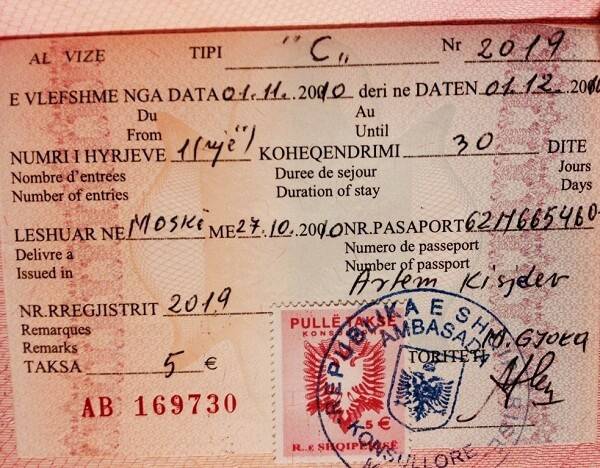 AL VIZE TIPI "C„ Nr 2019
E VLEFSHME NGA DATA 01.11.2010 deri ne DATEN 01.12.20
Du Au
From Until
NUMRI I HYRJEVE 1(një) KOHEQENDRIMI 30 DITE
Nombre d'entrees Duree de sejour Jours
Number of entries Duration of stay Days
LESHUAR NE Moskë ME 27.10.2010 NR.PASAPORT
Delivre a Numero de passeport
Issued in Number of passport
Artem
NR.RREGJISTRIT 2019
Remarques
Remarks
TAKSA 5 €
AB 169730
PULLË TAKSE
KONS
5 €
R..E SHQIPERISË
REPUBLIKA E SHQ
AMBASADA
M. GJOKA
TORITETI
KONSULLORE